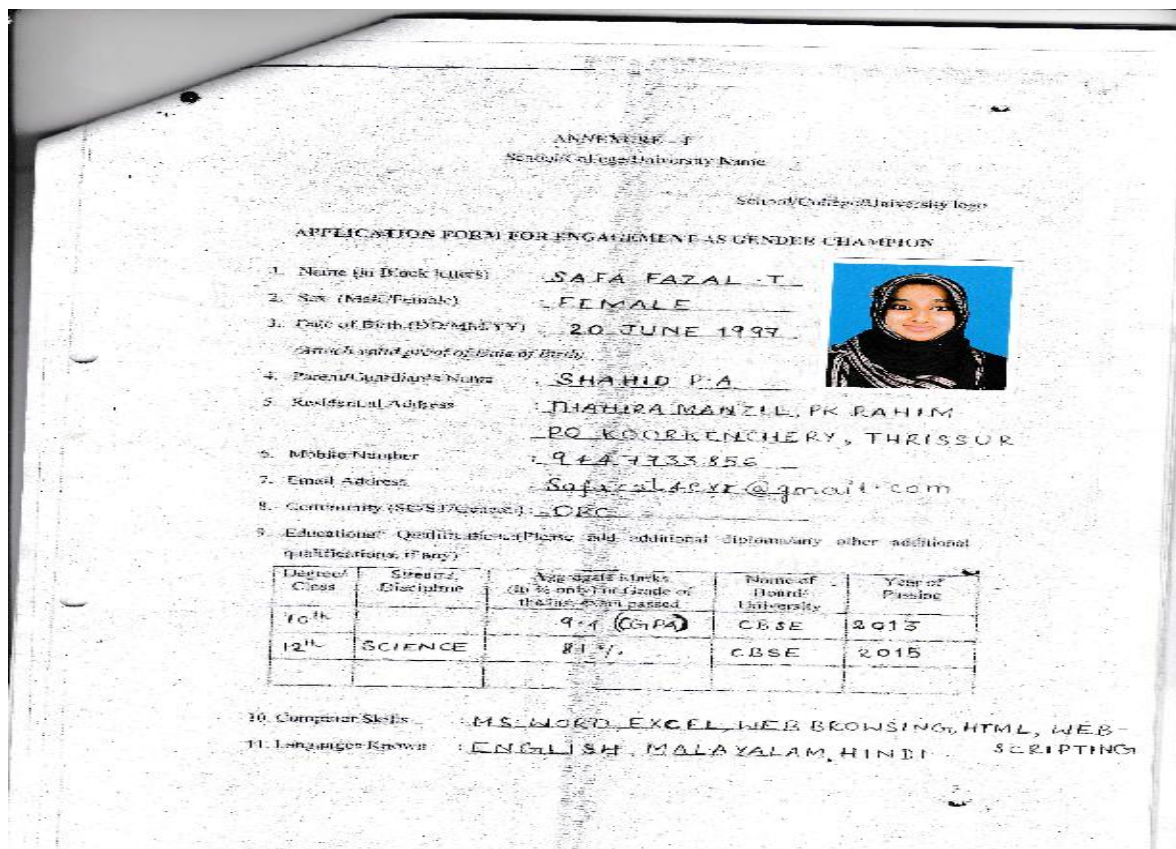 ANNEXURE - I
School/College/University Name
School/College/University logo
APPLICATION FORM FOR ENGAGEMENT AS GENDER CHAMPION
1. Name (in Block letters) : SAFA FAZAL . T
2. Sex (Male/Female) : FEMALE
3. Date of Birth (DD/MM/YY) : 20 JUNE 1997
(Attach valid proof of Date of Birth)
4. Parent/Guardian's Name : SHAHID P.A
5. Residential Address : THAHIRA MANZIL, PK RAHIM
PO KOORKENCHERY, THRISSUR
6. Mobile Number : 9447733856
7. Email Address : @gmail.com
8. Community (SC/ST/General) :
9. Educational Qualification (Please add additional diploma/any other additional
qualifications, if any)
Degree/ Class Stream/ Discipline Aggregate Marks (in % only) or Grade of the last exam passed Name of Board/ University Year of Passing
10th 9.4 (CGPA) CBSE 2013
12th SCIENCE 81 % CBSE 2015
10. Computer Skills : MS WORD, EXCEL, WEB BROWSING, HTML, WEB-
SCRIPTING
11. Languages Known : ENGLISH, MALAYALAM, HINDI